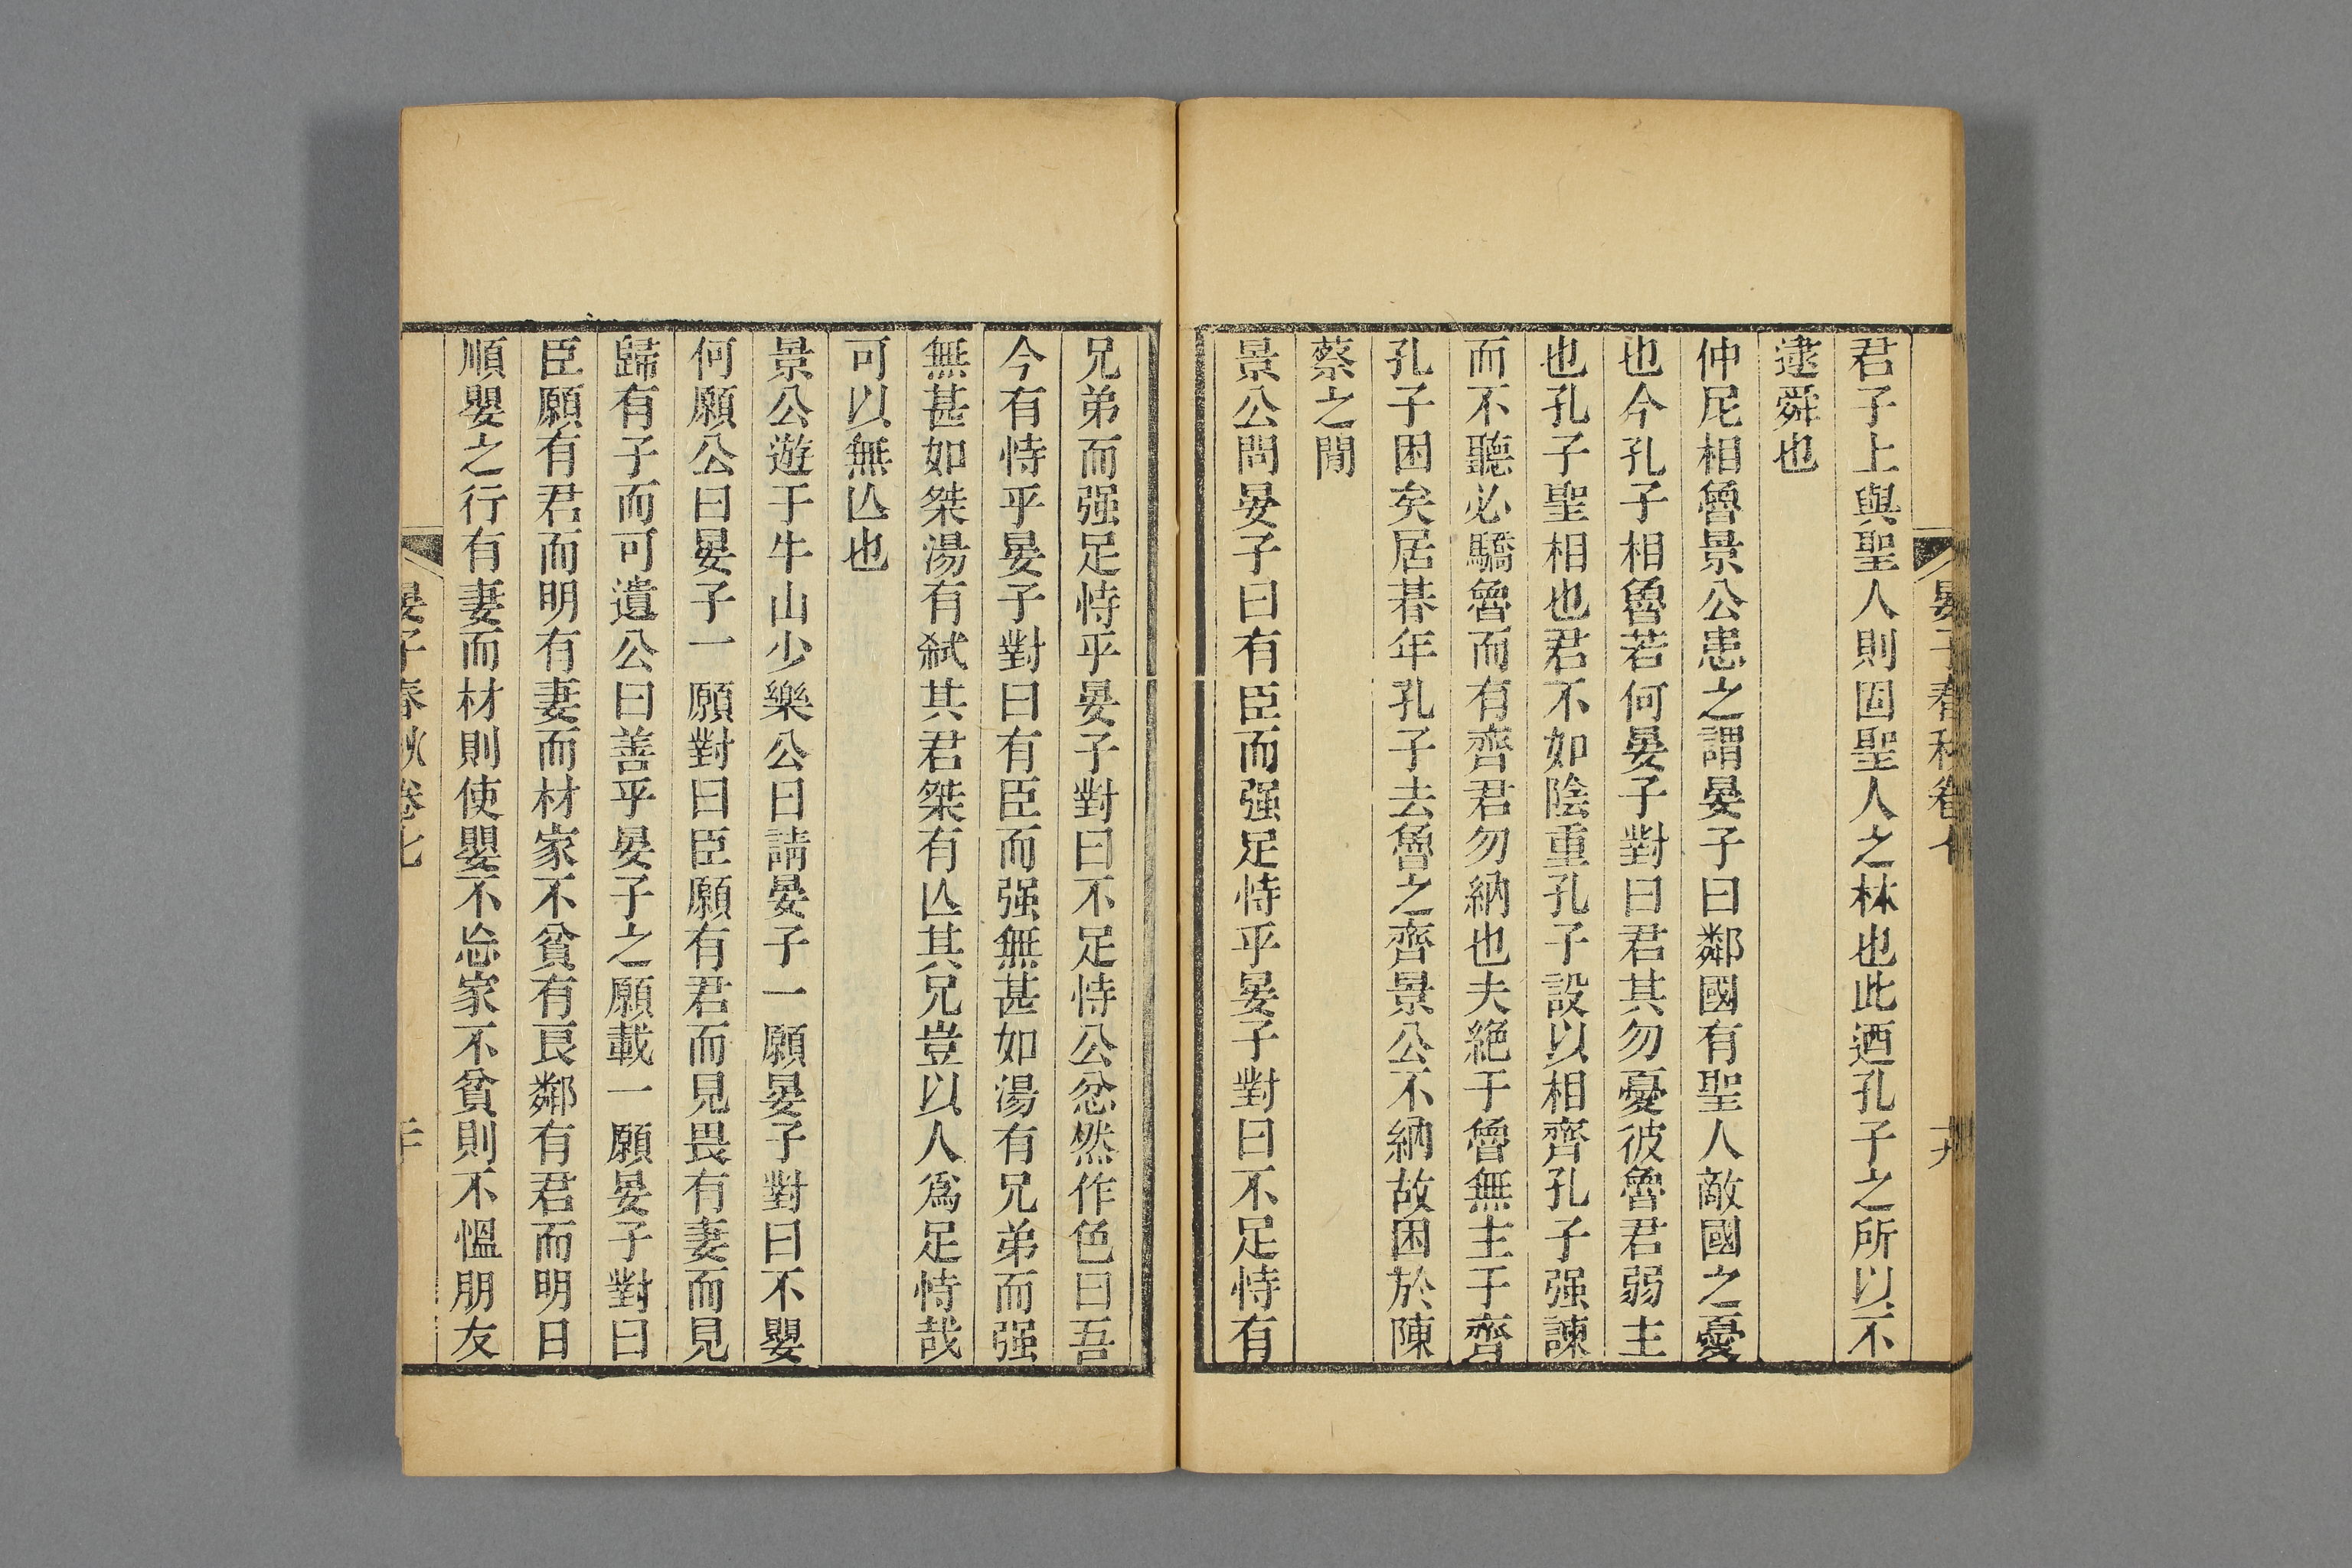 晏子春秋卷七 十九
君子上與聖人則固聖人之林也此迺孔子之所以不
逮舜也
仲尼相魯景公患之謂晏子曰鄰國有聖人敵國之憂
也今孔子相魯若何晏子對曰君其勿憂彼魯君弱主
也孔子聖相也君不如陰重孔子設以相齊孔子强諫
而不聽必驕魯而有齊君勿納也夫絶于魯無主于齊
孔子困矣居朞年孔子去魯之齊景公不納故困於陳
蔡之閒
景公問晏子曰有臣而强足恃乎晏子對曰不足恃有
兄弟而强足恃乎晏子對曰不足恃公忿然作色曰吾
今有恃乎晏子對曰有臣而强無甚如湯有兄弟而强
無甚如桀湯有弑其君桀有亾其兄豈以人爲足恃哉
可以無亾也
景公遊于牛山少樂公曰請晏子一願晏子對曰不嬰
何願公曰晏子一願對曰臣願有君而見畏有妻而見
歸有子而可遺公曰善乎晏子之願載一願晏子對曰
臣願有君而明有妻而材家不貧有良鄰有君而明日
順嬰之行有妻而材則使嬰不忘家不貧則不慍朋友
晏子春秋卷七